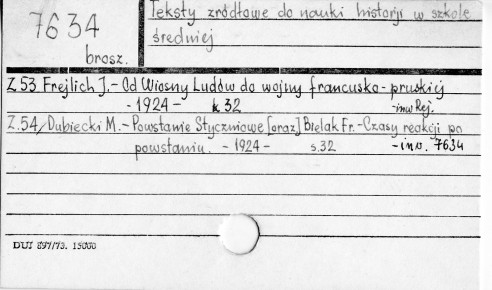 7634
brosz.
Teksty źródłowe do nauki historji w szkole
średniej
Z 53 Frejlich J.- Od Wiosny Ludów do wojny francusko-pruskiej
- 1924 - k 32 - inw Rej.
Z.54/Dubiecki M.- Powstanie Styczniowe [oraz] Bielak Fr.- Czasy reakcji po
powstaniu. - 1924 - s.32 - inw. 7634
DUJ 897/73. 15000